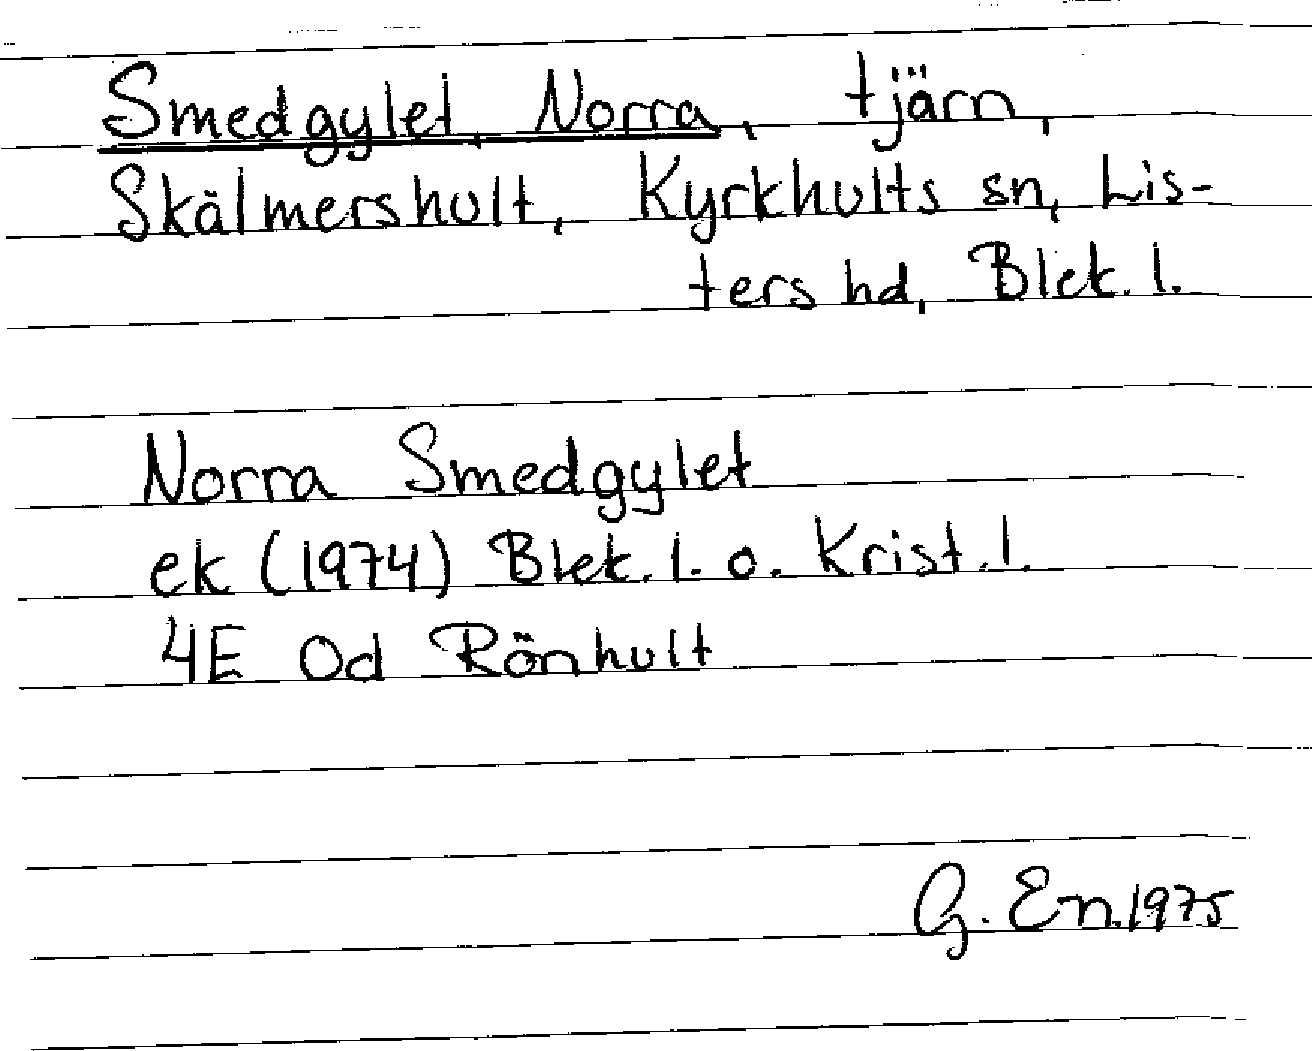 Smedgylet, Norra, tjärn,
Skälmershult, Kyrkhults sn, Lis-
ters hd, Blek. l.
Norra Smedgylet
ek (1974) Blek. l. o. Krist. l.
4E 0d Rönhult
G. En. 1975